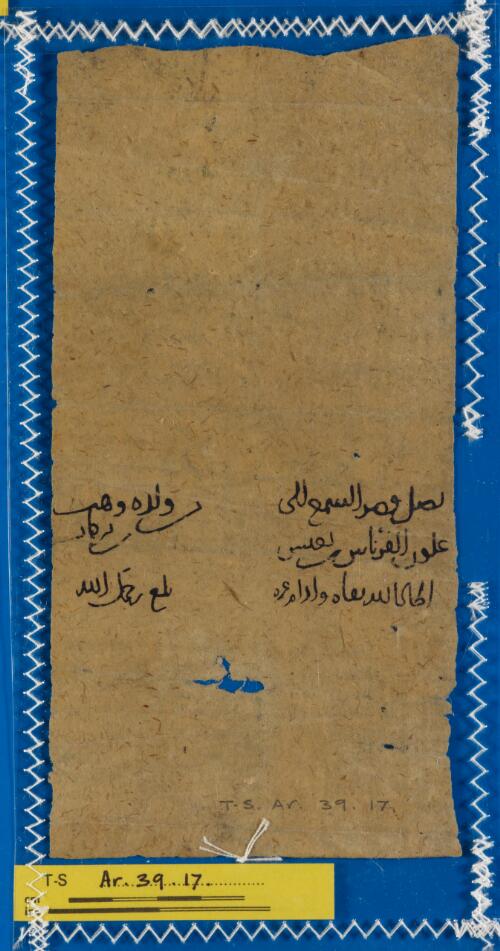 يصل قصر الشمع الى
علون الفرناس بن يعيش
اطال الله بقاه وادام عزه
ولده وهب
بركات
بلغ رحمك الله
T-S. Ar. 39. 17.
T-S Ar. 39. 17.